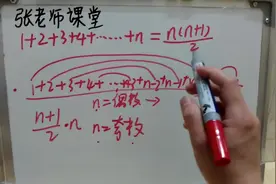 张老师课堂
1+2+3+4+……+n = n(n+1)/2
1+2+3+4+……+n-3+n-2+n-1+n
n=偶数 →
(n+1)/2 ·n
n=奇数